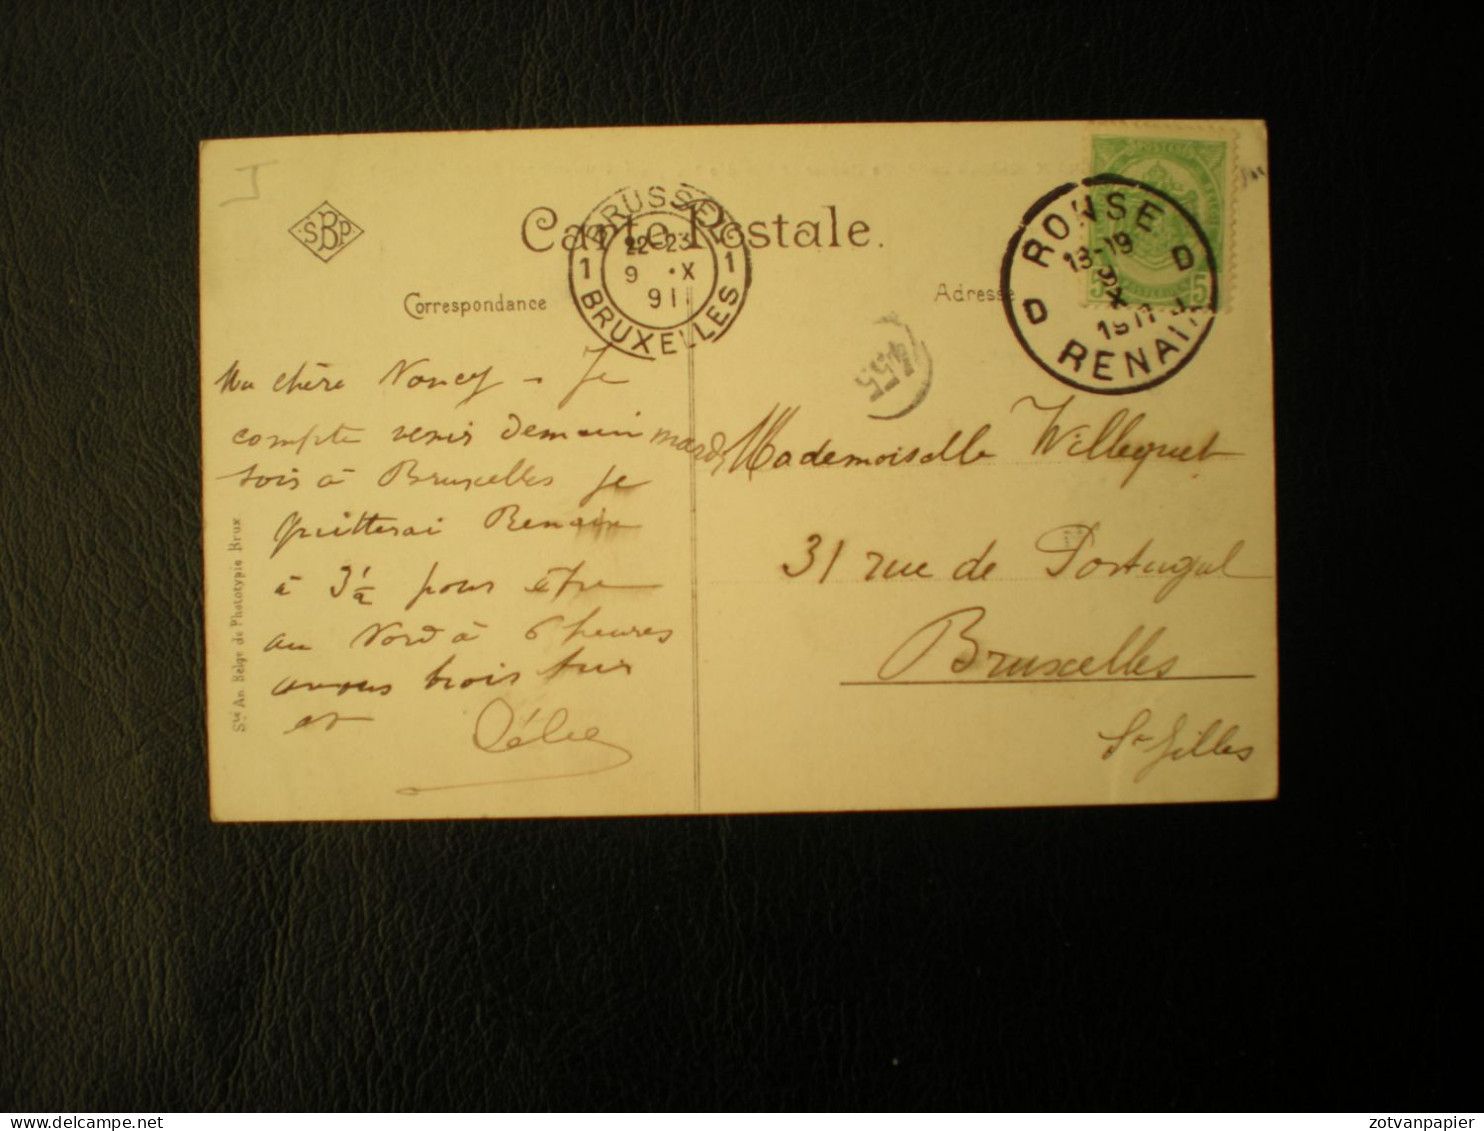 SBP
Carte Postale.
Correspondance
Adresse
BRUSSEL
22-23
9 · X
91
1 1
BRUXELLES
RONSE
18-19
9
X
D D
RENAIX
POSTES
5 5
455
Ma chère Nancy – Je
compte venir demain mardi
soir à Bruxelles je
quitterai Renaix
à 3 1/2 pour être
au Nord à 6 heures
trois
et
Célie
Mademoiselle Willequet
31 rue de Portugal
Bruxelles
St Gilles
Sté An. Belge de Phototypie Brux.
zotvanpapier